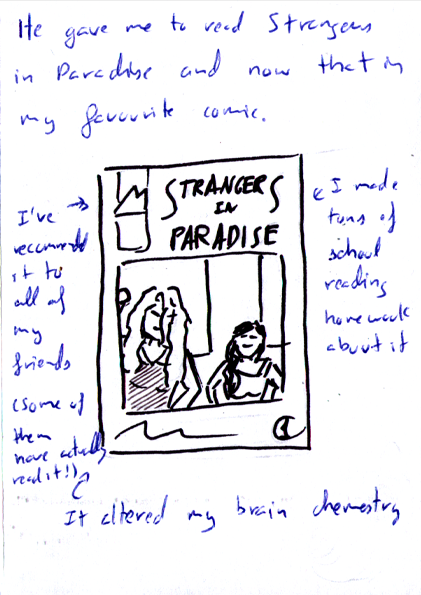 He gave me to read Strangers
in Paradise and now that is
my favourite comic.
STRANGERS
IN
PARADISE
I've
recommend
it to
all of
my
friends
(some of
them
have actually
read it!)
I made
tons of
school
reading
homework
about it
It altered my brain chemestry